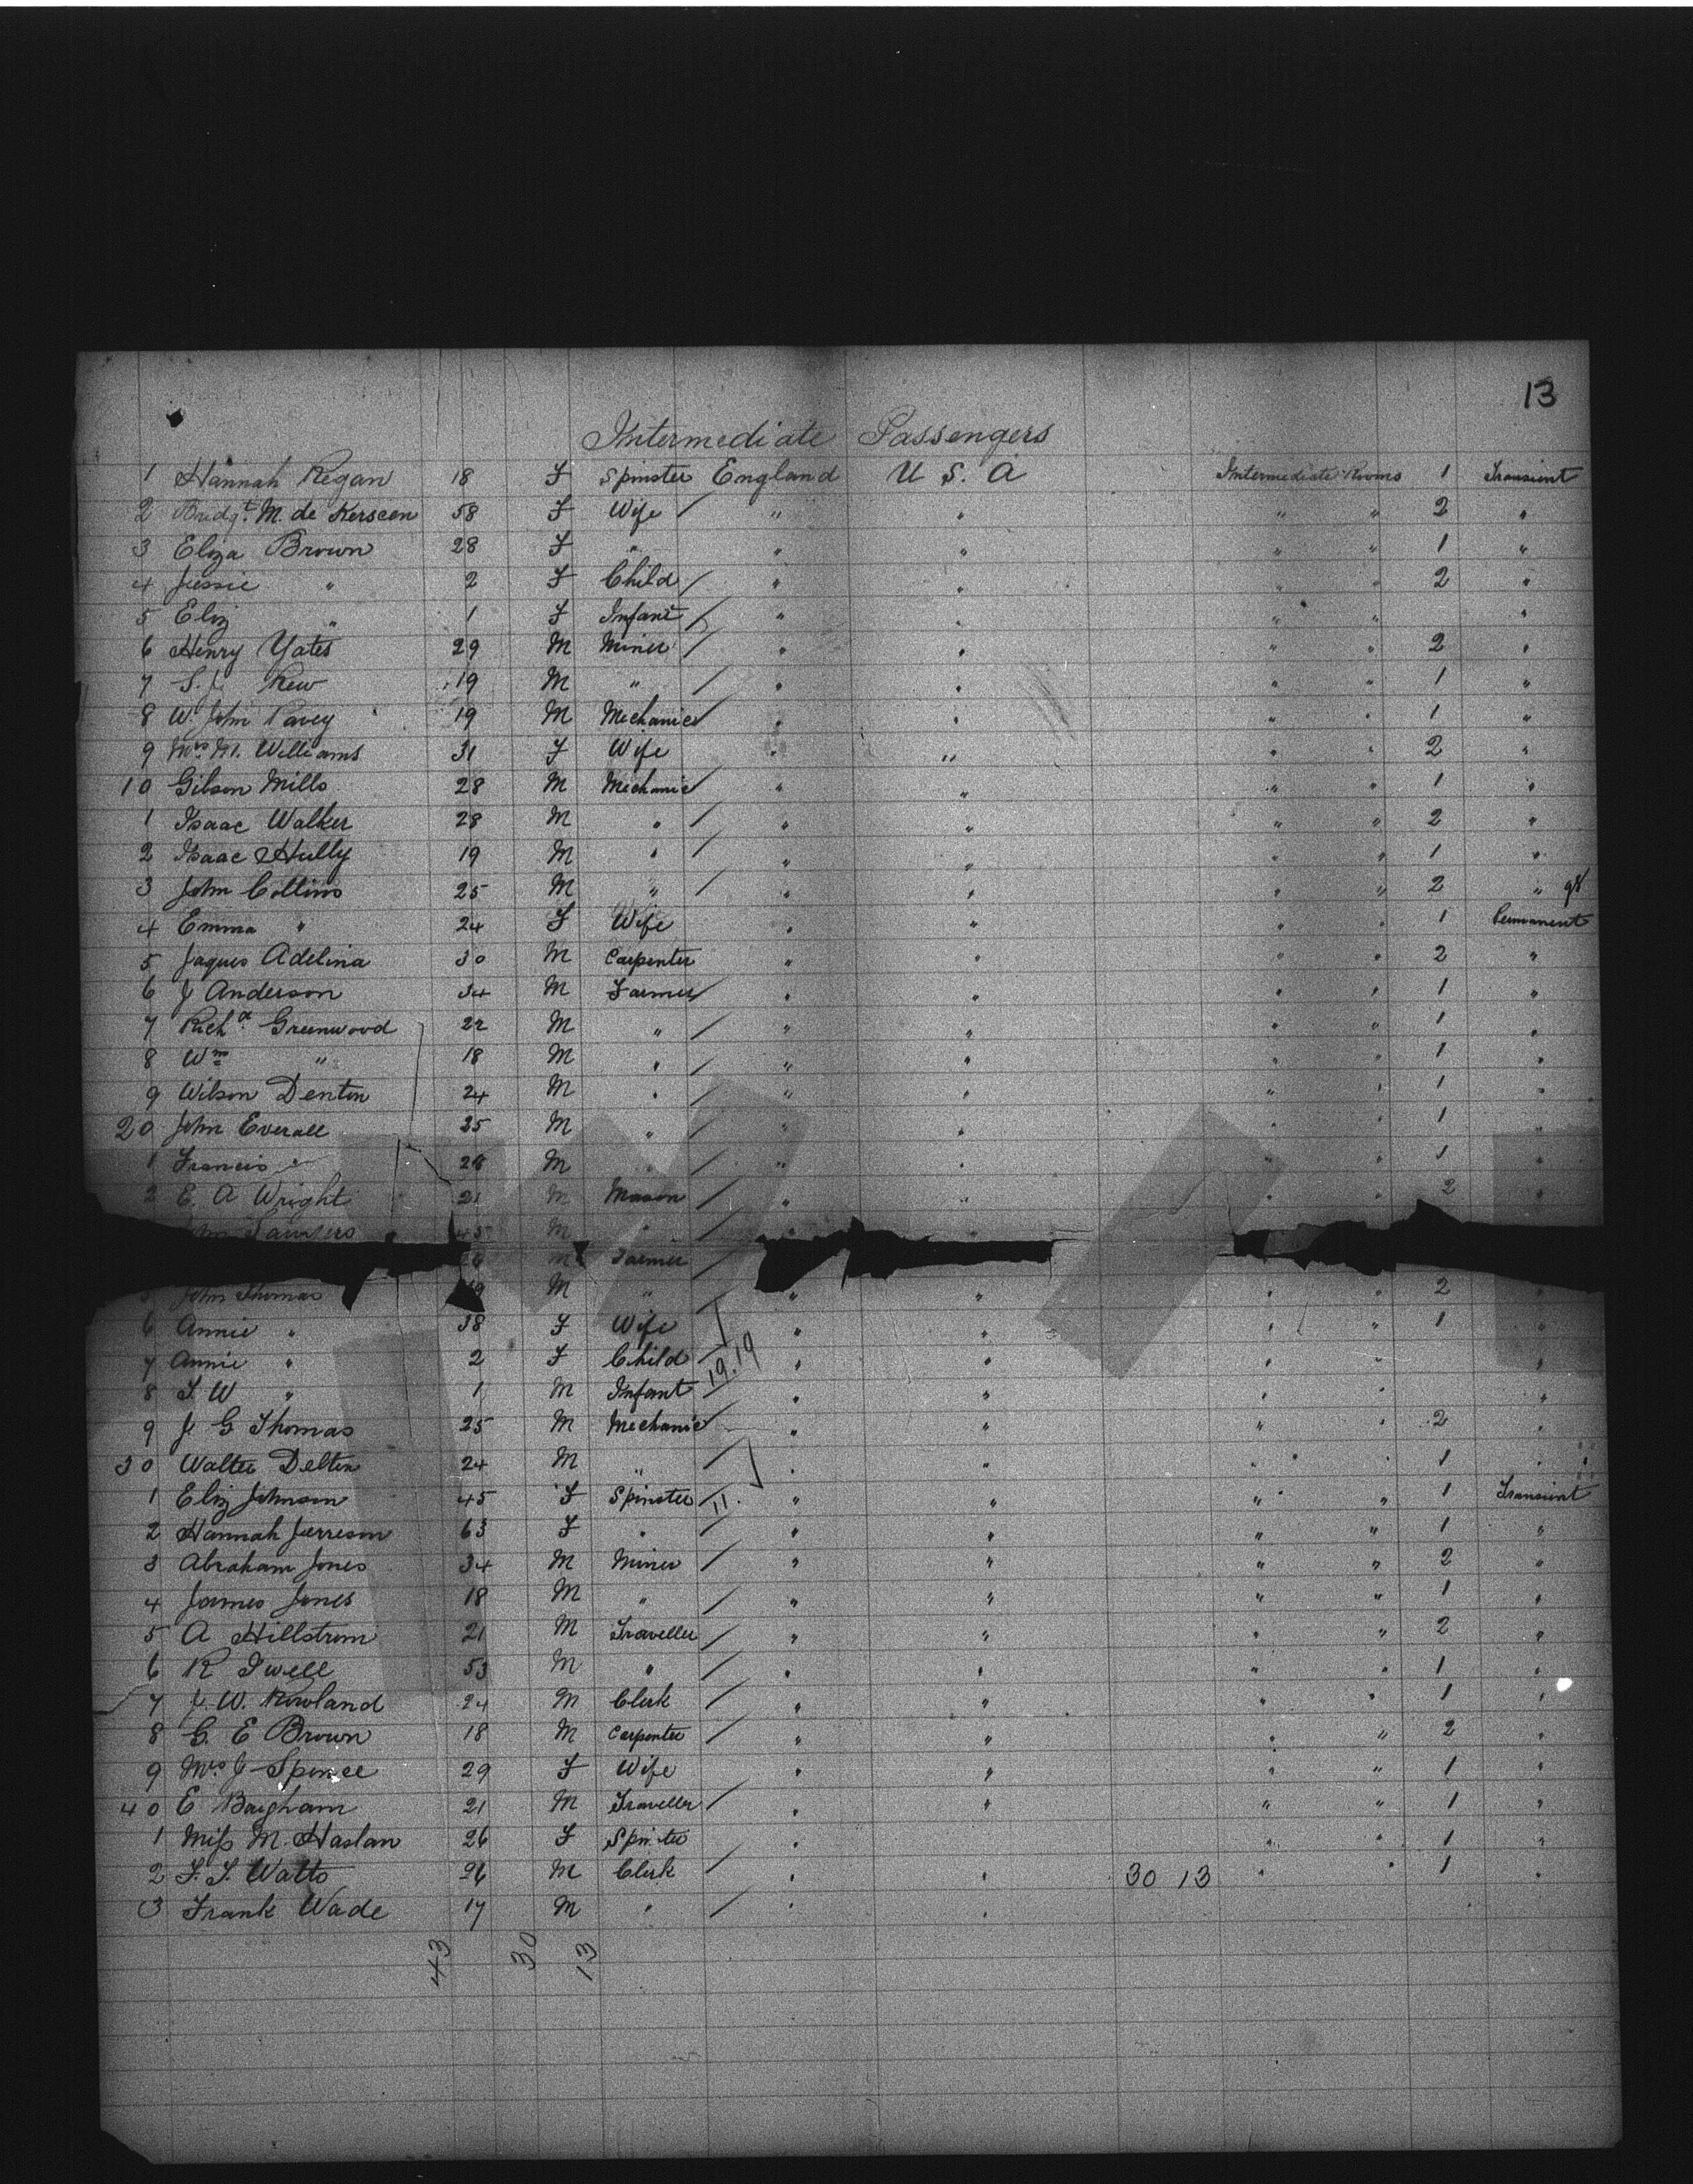 13
Intermediate Passengers
1 Hannah Regan 18 F Spinster England U. S. A Intermediate Rooms 1 Transient
2 Bridgt. M. de Kerseen 58 F Wife / " " " " 2 "
3 Eliza Brown 28 F " " " " " 1 "
4 Jessie " 2 F Child / " " " " 2 "
5 Eliz " 1 F Infant / " " " " "
6 Henry Yates 29 M Miner / " " " " 2 "
7 S. J. Rew 19 M " / " " " " 1 "
8 W. John Pavey 19 M Mechanic / " " " " 1 "
9 Mrs M. Williams 31 F Wife " " " " 2 "
10 Gibson Mills 28 M Mechanic / " " " " 1 "
1 Isaac Walker 28 M " / " " " " 2 "
2 Isaac Hully 19 M " / " " " " 1 "
3 John Collins 25 M " / " " " " 2 " 98
4 Emma " 24 F Wife " " " " 1 Permanent
5 Jaques Adelina 30 M Carpenter " " " " 2 "
6 J Anderson 34 M Farmer / " " " " 1 "
7 Richd. Greenwood 22 M " / " " " " 1 "
8 Wm " 18 M " / " " " " 1 "
9 Wilson Denton 24 M " / " " " " 1 "
20 John Everall 25 M " / " " " " 1 "
1 Francis " 28 M " / " " " " 1 "
2 E. A Wright 21 M Mason / " " " " 2 "
45 M " / "
M Farmer /
John Thomas M " / " " " " 2 "
6 Annie " 38 F Wife " " " " 1 "
7 Annie " 2 F Child / 19.19 " " " " "
8 T. W " 1 M Infant / " " " " "
9 J. G Thomas 25 M Mechanic / " " " " 2 "
30 Walter Delten 24 M " / " " " " 1 "
1 Eliz Johnson 45 F Spinster / 11. " " " " 1 Transient
2 Hannah Jerreson 63 F " / " " " " 1 "
3 Abraham Jones 34 M Miner / " " " " 2 "
4 James Jones 18 M " / " " " " 1 "
5 A Hillstrom 21 M Traveller / " " " " 2 "
6 R Iwell 53 M " / " " " " 1 "
7 J. W. Rowland 24 M Clerk / " " " " 1 "
8 G. E Brown 18 M Carpenter / " " " " 2 "
9 Mrs J Spence 29 F Wife " " " " 1 "
40 E Bargham 21 M Traveller / " " " " 1 "
1 Miss M. Haslan 26 F Spinster " " " 1 "
2 F. T. Watts 26 M Clerk / " " 30 13 " " 1 "
3 Frank Wade 17 M " / " "
43 30 13